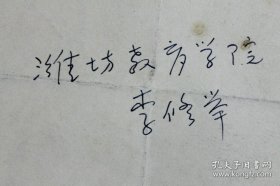 潍坊教育学院
李修举
孔夫子旧书网